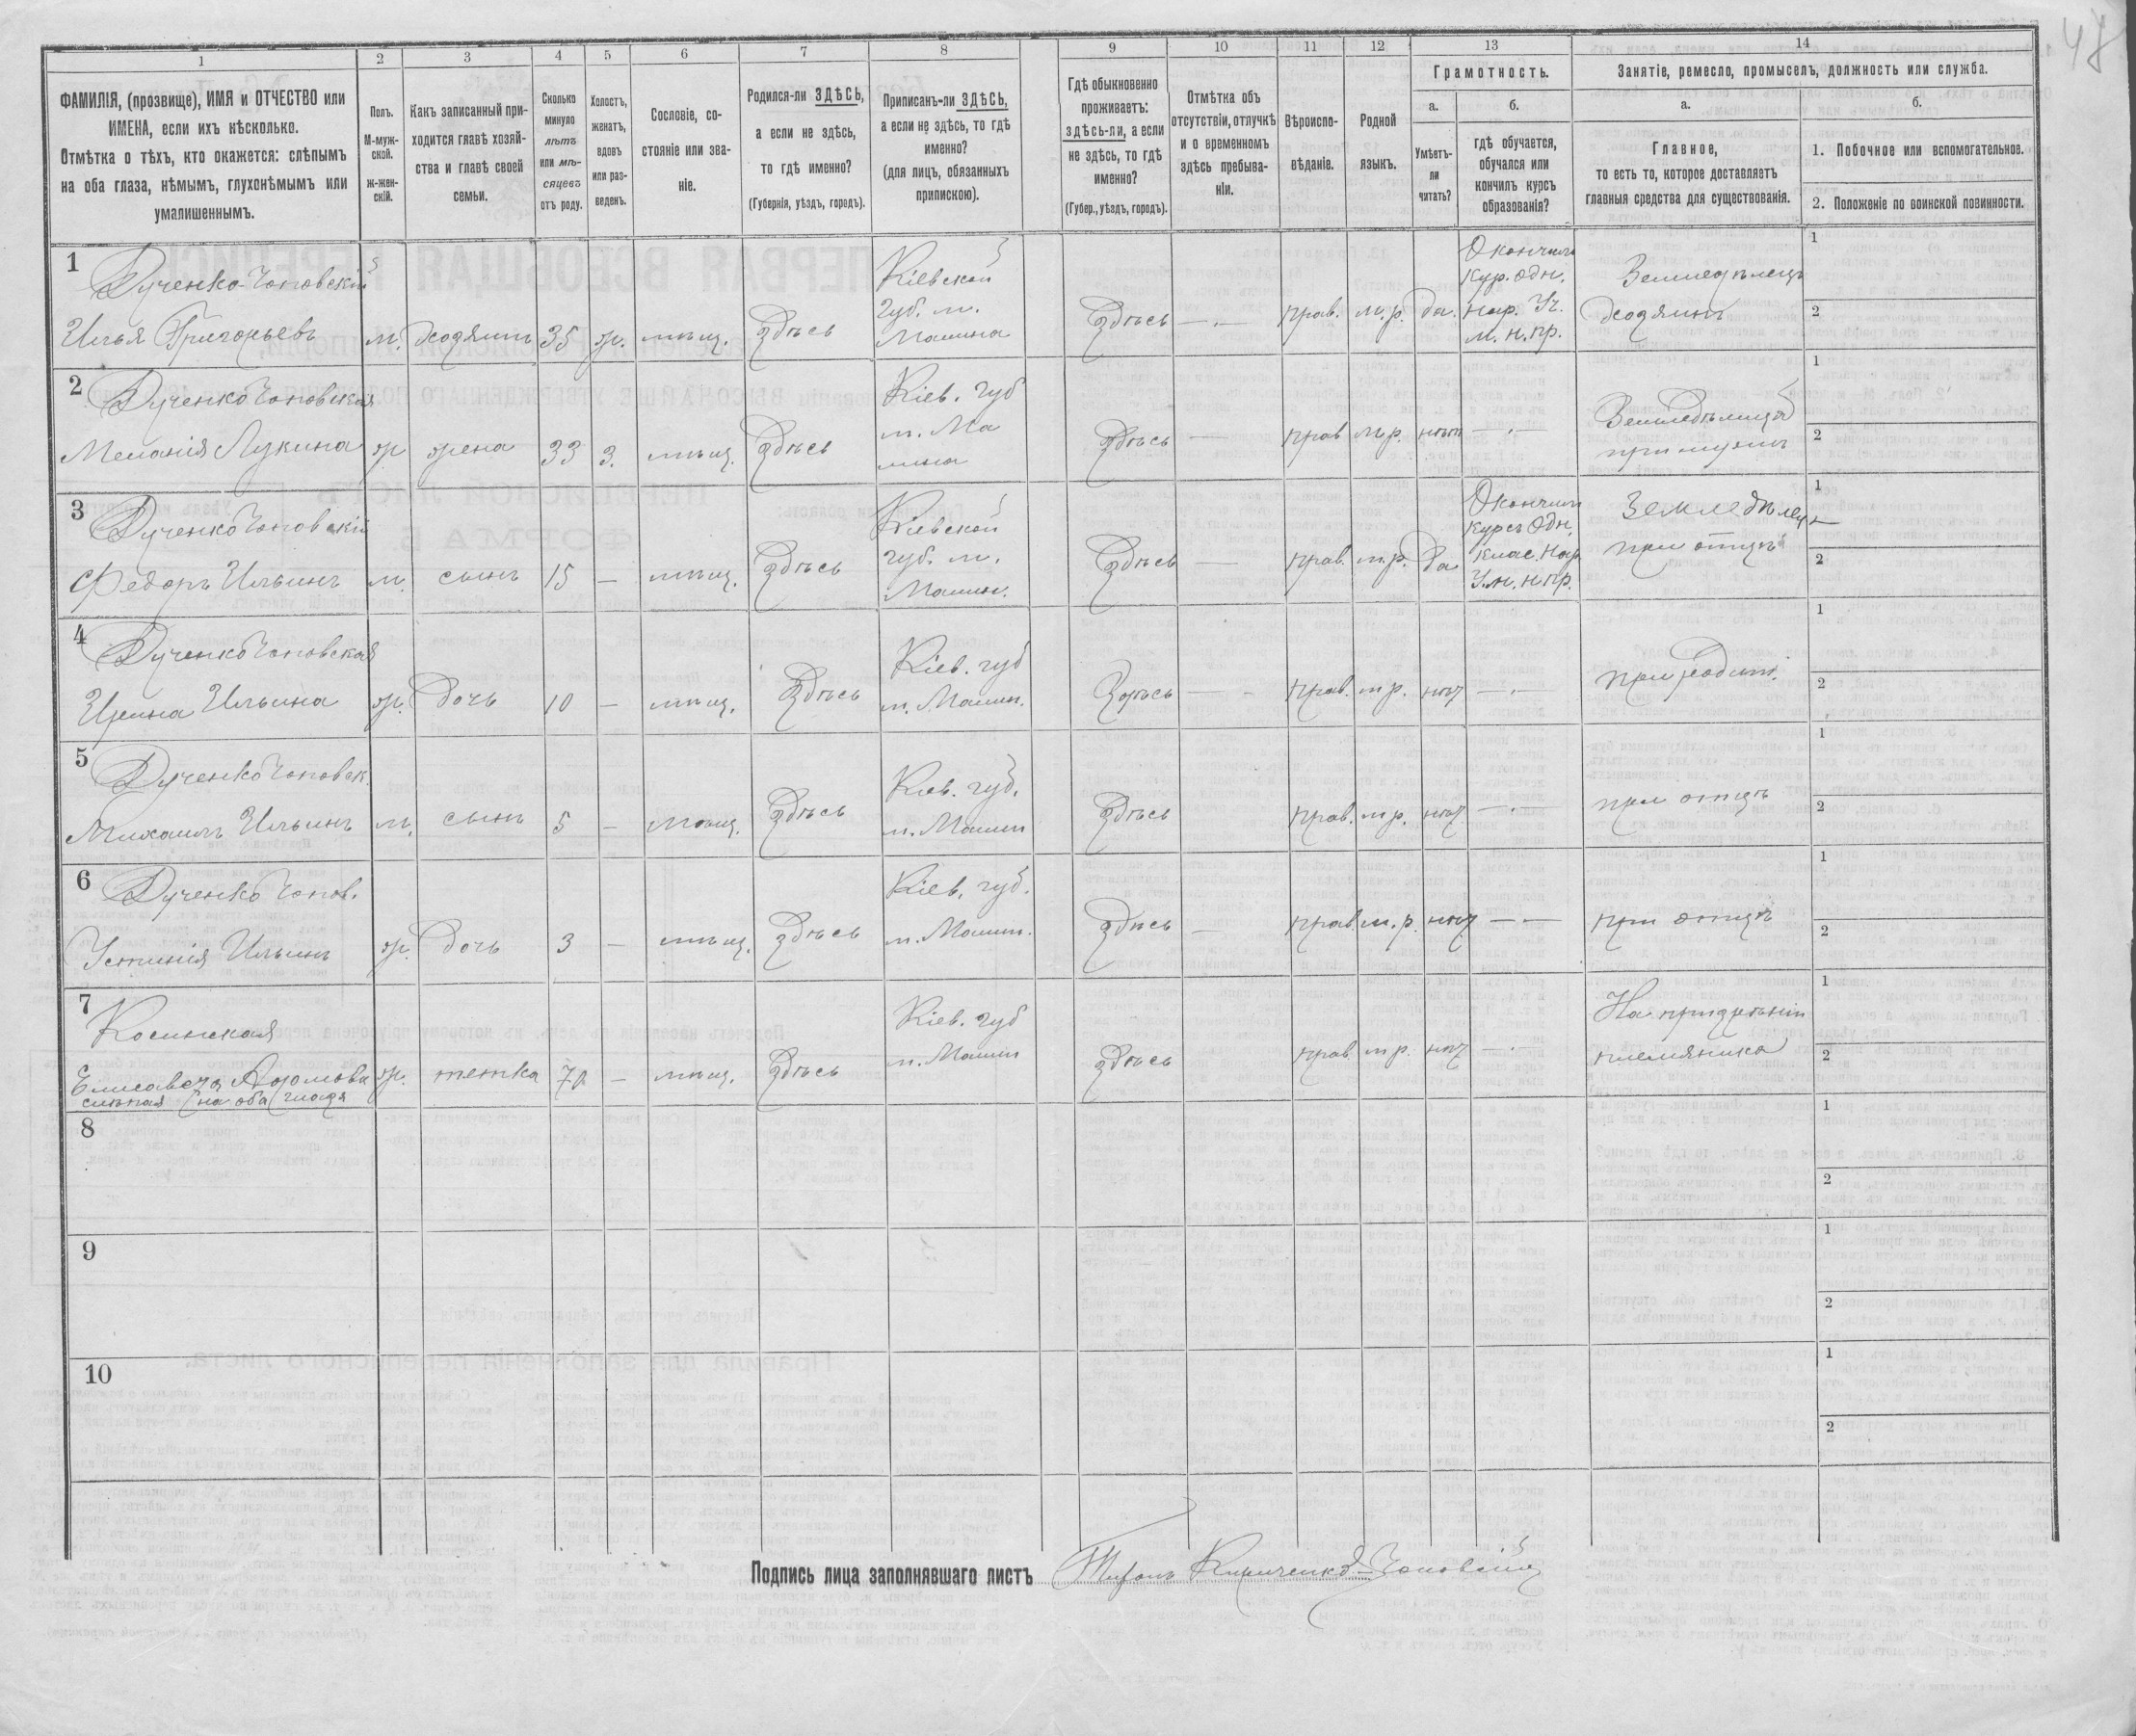 47
1
2
3
4
5
6
7
8
9
10
11
12
13
14
ФАМИЛІЯ, (прозвище), ИМЯ и ОТЧЕСТВО или
ИМЕНА, если ихъ нѣсколько.
Отмѣтка о тѣхъ, кто окажется: слѣпымъ
на оба глаза, нѣмымъ, глухонѣмымъ или
умалишеннымъ.
Полъ.
М-муж-
ской.
Ж-жен-
скій.
Какъ записанный при-
ходится главѣ хозяй-
ства и главѣ своей
семьи.
Сколько
минуло
лѣтъ
или мѣ-
сяцевъ
отъ роду.
Холостъ,
женатъ,
вдовъ
или раз-
веденъ.
Сословіе, со-
стояніе или зва-
ніе.
Родился-ли ЗДѢСЬ,
а если не здѣсь,
то гдѣ именно?
(Губернія, уѣздъ, городъ).
Приписанъ-ли ЗДѢСЬ,
а если не здѣсь, то гдѣ
именно?
(для лицъ, обязанныхъ
припискою).
Гдѣ обыкновенно
проживаетъ:
здѣсь-ли, а если
не здѣсь, то гдѣ
именно?
(Губер., уѣздъ, городъ).
Отмѣтка объ
отсутствіи, отлучкѣ
и о временномъ
здѣсь пребыва-
ніи.
Вѣроиспо-
вѣданіе.
Родной
языкъ.
Грамотность.
а.
Умѣетъ-
ли
читать?
б.
гдѣ обучается,
обучался или
кончилъ курсъ
образованія?
Занятіе, ремесло, промыселъ, должность или служба.
а.
Главное,
то есть то, которое доставляетъ
главныя средства для существованія.
б.
1. Побочное или вспомогательное.
2. Положеніе по воинской повинности.
1
Дученко-Чоповскій
Илья Григорьевъ
м.
хозяинъ
35
ж.
мѣщ.
Здѣсь
Кіевской
губ. м.
Малина
Здѣсь
прав.
м.р.
да.
Окончилъ
кур. одн.
нар. Уч.
м. н. пр.
Земледѣлецъ
хозяинъ
1
2
2
Дученко Чоповская
Меланія Лукина
ж
жена
33
з.
мѣщ.
Здѣсь
Кіев. губ
м. Ма
лина
Здѣсь
прав
м.р.
нѣт
Земледѣлица
при мужѣ
1
2
3
Дученко Чоповскій
Федоръ Ильинъ
м.
сынъ
15
—
мѣщ.
Здѣсь
Кіевской
губ. м.
Малин.
Здѣсь
прав.
м.р.
Да
Окончилъ
курсъ Одн.
клас. Нар.
У. м. н. пр.
Земледѣлец
при отцѣ
1
2
4
Дученко Чоповская
Ирина Ильина
ж.
дочь
10
—
мѣщ.
Здѣсь
Кіев. губ
м. Малин.
Здѣсь
прав.
м р.
нѣт
при родит.
1
2
5
Дученко Чоповск.
Михаилъ Ильинъ
м.
сынъ
5
—
мѣщ.
Здѣсь
Кіев. губ.
м. Малин
Здѣсь
прав.
м р.
нѣт
при отцѣ
1
2
6
Дученко Чопов.
Устинія Ильин
ж.
дочь
3
—
мѣщ.
Здѣсь
Кіев. губ.
м. Малин.
Здѣсь
прав.
м. р.
нѣт
при отцѣ
1
2
7
Косинская
Елисавета
слѣпая на оба глаза
ж.
тетка
—
мѣщ.
Здѣсь
Кіев. губ
м. Малин
здѣсь
прав.
м р.
нѣт
На призрѣніи
племянника
1
2
8
1
2
9
1
2
10
1
2
Подпись лица заполнявшаго листъ